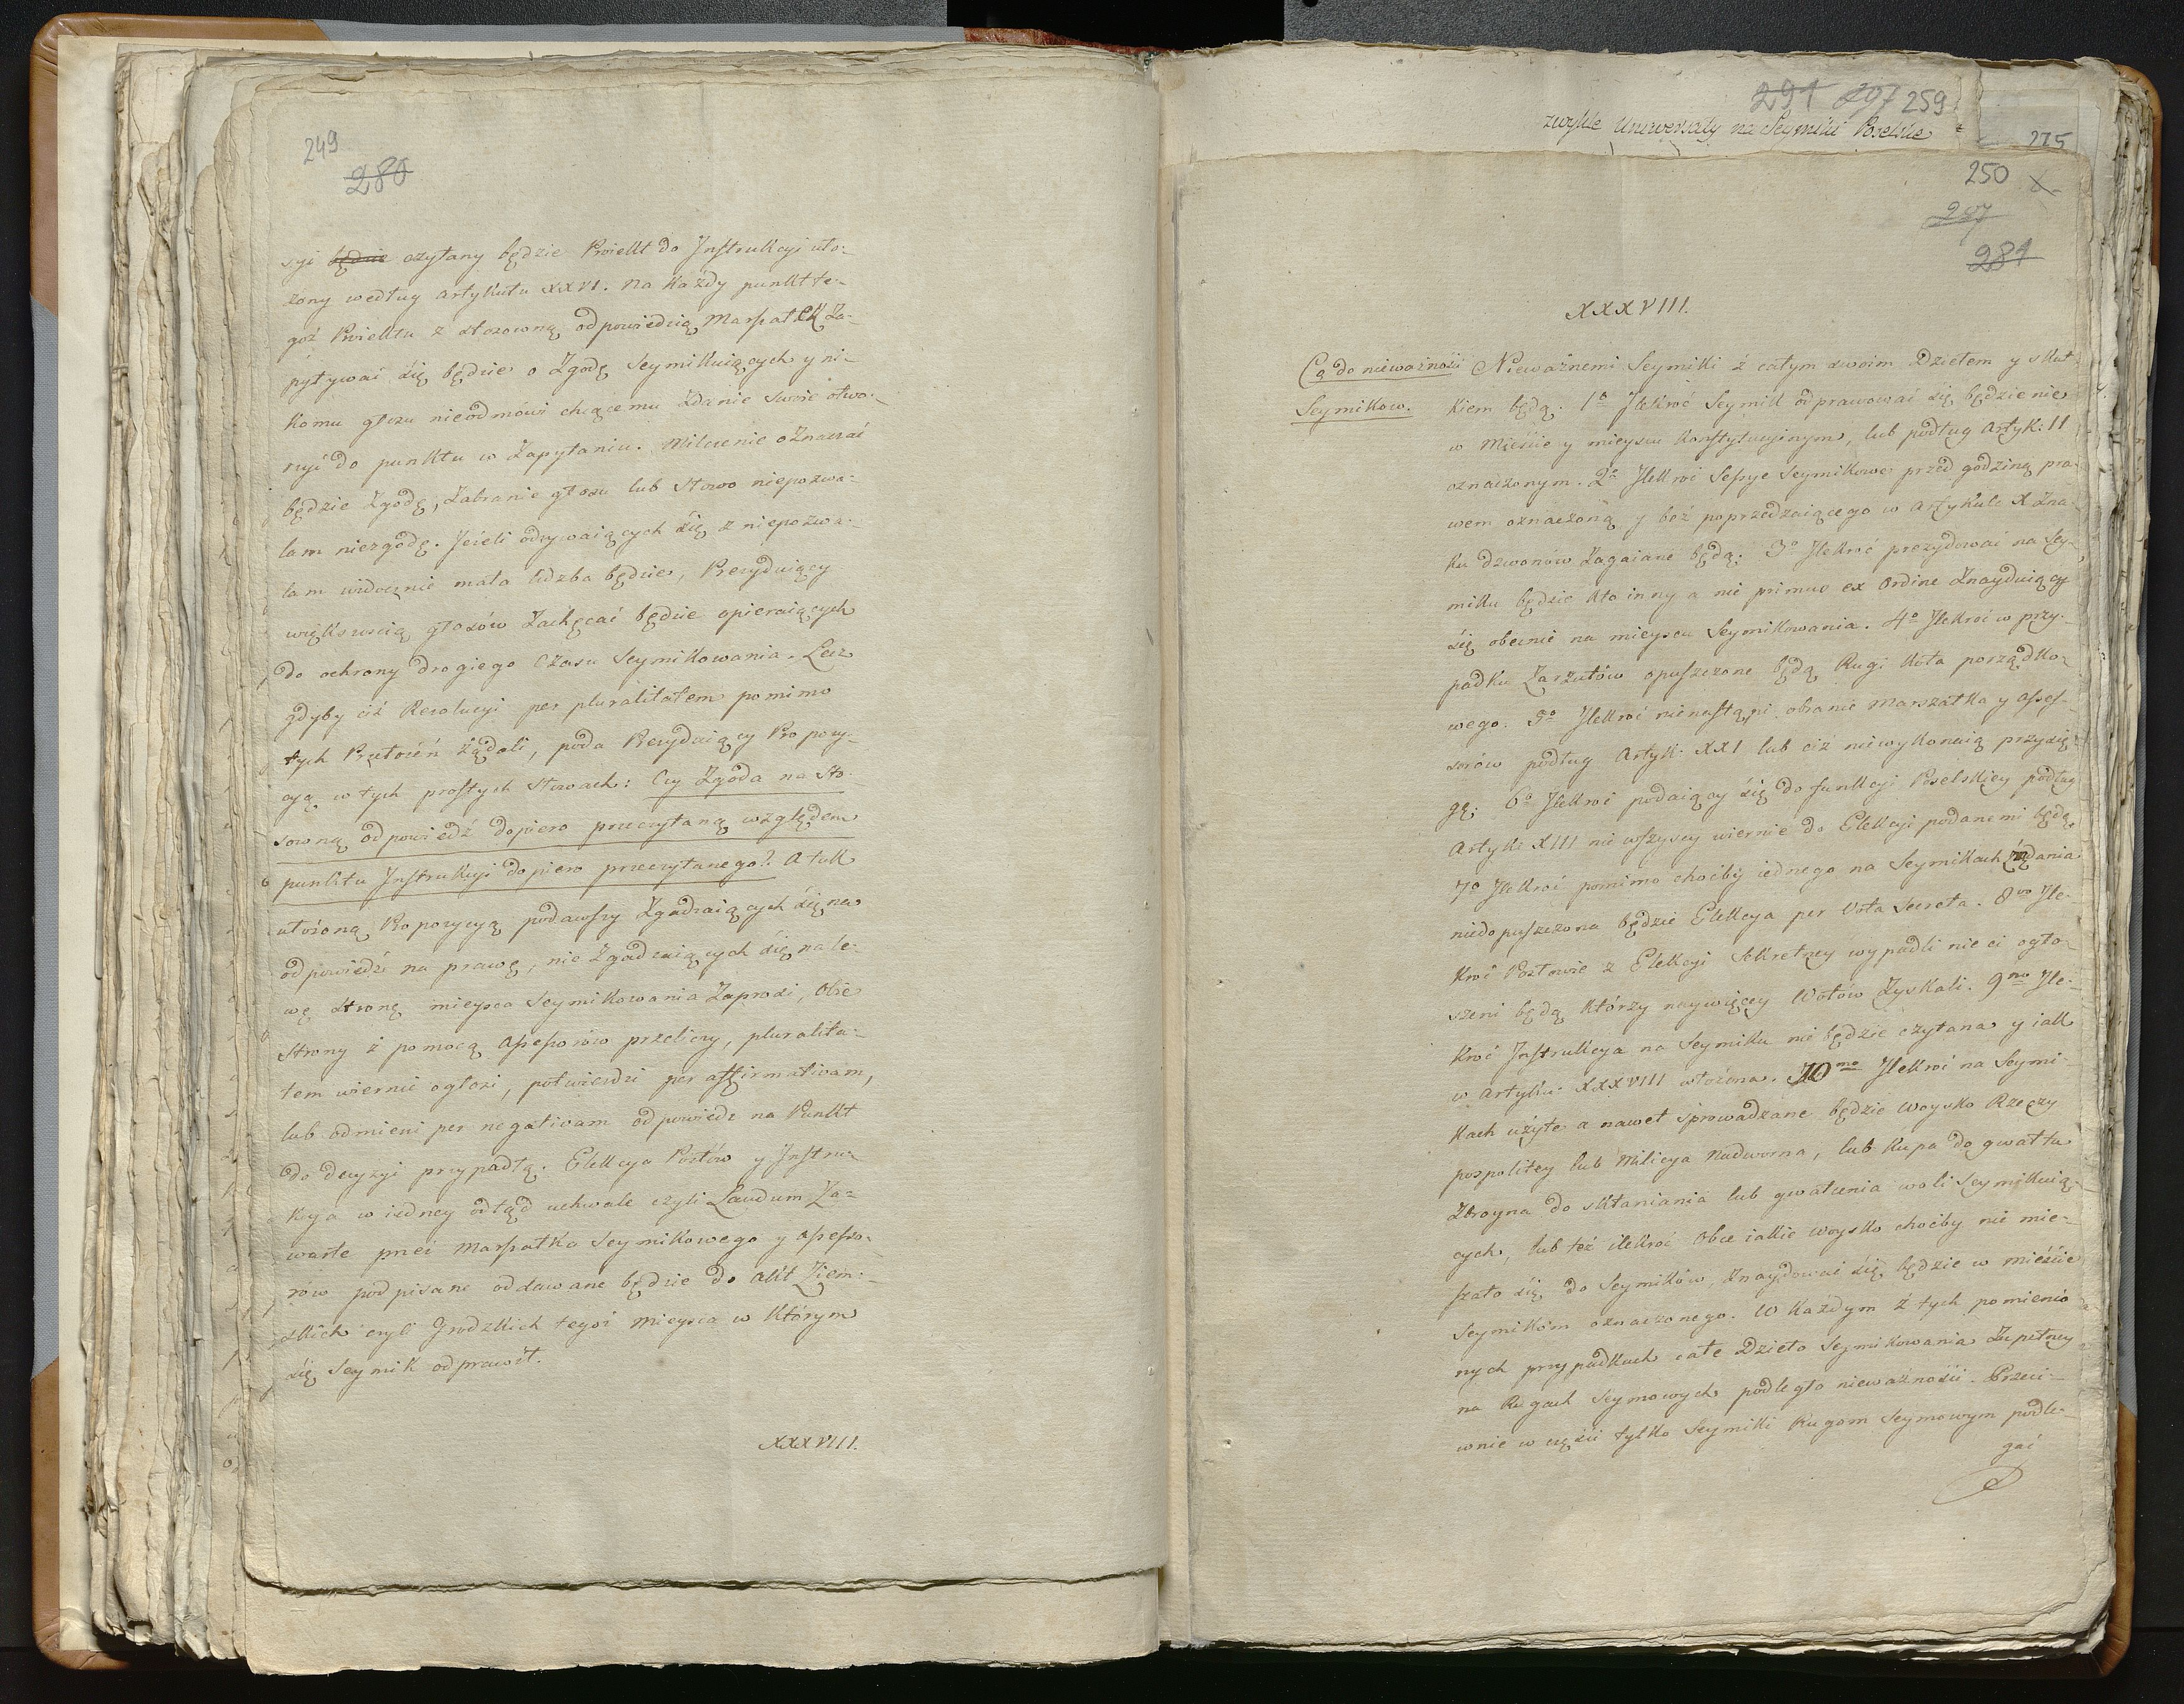 249
280
syi będzie czytany będzie Proiekt do Instrukcyi uło-
żony według artykułu XXVI. Na każdy punkt te-
goż Proiektu z stosowną odpowiedzią Marszałek Za-
pytywać się będzie o Zgodę Seymikuiących y ni-
komu głosu nieodmówi chcącemu Zdanie swoie otwo-
rzyć do punktu w Zapytaniu. Milczenie oznaczać
będzie Zgodę, Zabranie głosu lub słowo niepozwa-
lam niezgodę. Jeżeli odzywaiących się z niepozwa-
lam widocznie mała liczba będzie, Prezyduiący
większością głosów Zachęcać będzie opieraiących
do ochrony drogiego czasu Seymikowania. Lecz
gdyby ciż Rezolucyi per pluralitatem pomimo
tych Przełożeń żądali, poda Prezyduiący Propozy-
cyą w tych prostych słowach: Czy Zgoda na sto-
sowną odpowiedź dopiero przeczytaną względem
punktu Instrukcyi dopiero przeczytanego? A tak
ułożoną Propozycyą podawszy Zgadzaiących się na
odpowiedź na prawę, nie Zgadzaiących się na le-
wę stronę mieysca Seymikowania Zaprosi, obie
strony z pomocą assessorów przeliczy, pluralita-
tem wiernie ogłosi, potwierdzi per affirmativam,
lub odmieni per negativam odpowiedz na Punkt
do decyzyi przypadłą. Elekcya Posłów y Instru-
kcya w iedney odtąd uchwale czyli Laudum Za-
warte przez Marszałka Seymikowego y assesso-
rów podpisane oddawane będzie do akt Ziem-
skich czyli Grodzkich tegoż mieysca w którym
się Seymik odprawił.
XXXVIII.
291 297 259
zwykłe Uniwersały na Seymiki Poselskie
275
250
287
281
XXXVIII.
Co do nieważności
Seymikow.
Nieważnemi Seymiki z całym swoim Dziełem y skut-
kiem będą. 1º Ilekroć Seymik odprawować się będzie nie
w Mieście y mieyscu konstytucyinym, lub podług Artyk: II
oznaczonym. 2º Ilekroć Sessye Seymikowe przed godziną pra-
wem oznaczoną y bez poprzedzaiącego w Artykule X Zna-
ku dzwonów Zagaiane będą. 3º Ilekroć prezydować na Sey-
miku będzie kto inny a nie primus ex Ordine Znayduiący
się obecnie na mieyscu Seymikowania. 4º Ilekroć w przy-
padku Zarzutów opuszczone będą Rugi koła porządko-
wego. 5º Ilekroć nienastąpi obranie Marszałka y asses-
sorów podług Artyk: XXI lub ciż niewykonaią przysię-
gę. 6º Ilekroć podaiący się do funkcyi Poselskiey podług
Artyk: XIII nie wszyscy wiernie do Elekcyi podanemi będą.
7º Ilekroć pomimo choćby iednego na Seymikach żądania
niedopuszczona będzie Elekcya per Vota Secreta. 8vo Ile-
kroć Posłowie z Elekcyi sekretney wypadli nie ci ogło-
szeni będą którzy naywięcey Wotów Zyskali. 9no Ile-
kroć Instrukcya na Seymiku nie będzie czytana y iak
w Artyku: XXXVIII ułożona. 10mo Ilekroć na Seymi-
kach użyte a nawet sprowadzane będzie woysko Rzeczy
pospolitey lub Milicya Nadworna, lub kupa do gwałtu
Zbroyna do skłaniania lub gwałcenia woli Seymikuią-
cych, lub też ilekroć Obce iakie woysko choćby nie mie-
szało się do Seymików, Znaydować się będzie w mieście
Seymikom oznaczonego. W każdym z tych pomienio
nych przypadkach całe Dzieło Seymikowania Zupełney
na Rugach Seymowych podległo nieważności. Przeci-
wnie w części tylko Seymiki Rugom Seymowym podle-
gać